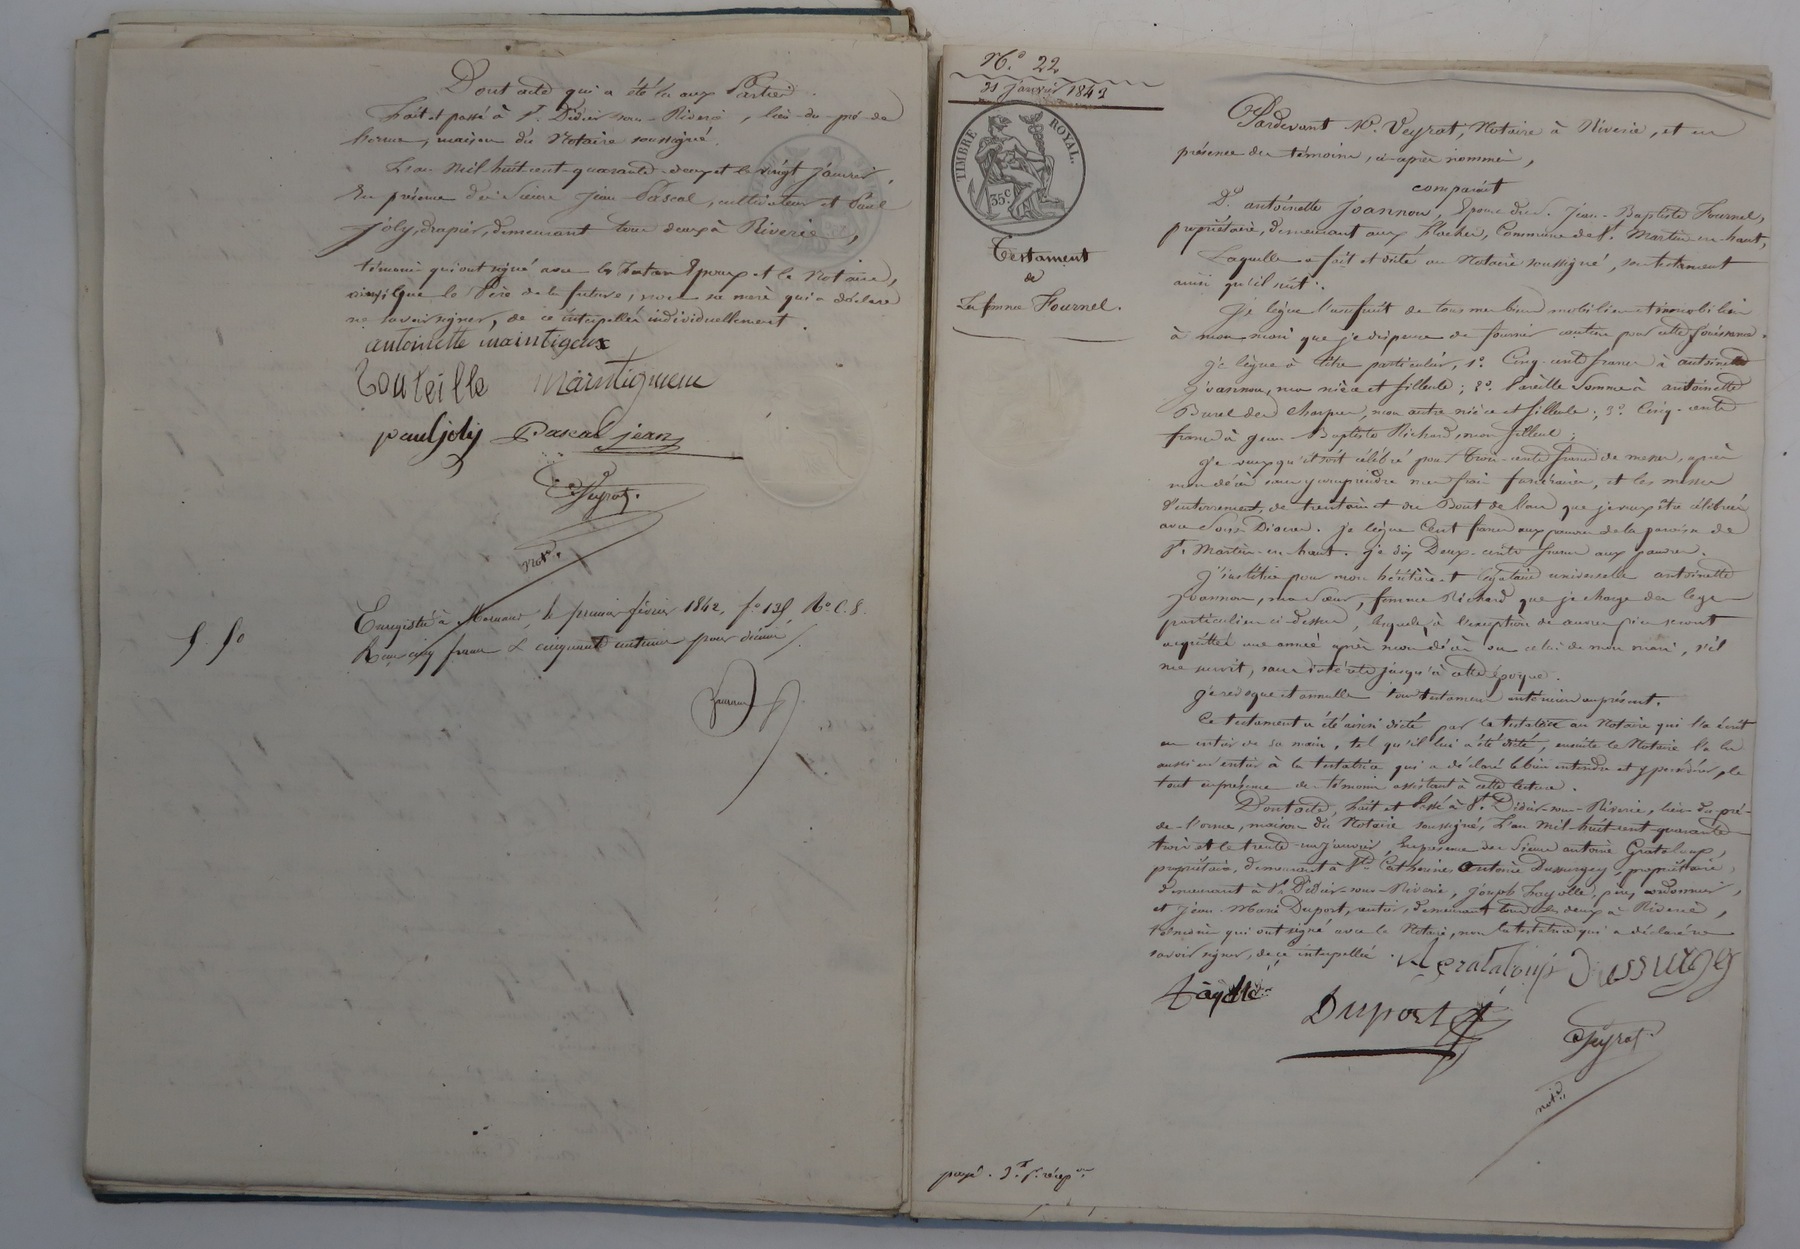 Dont acte qui a été lu aux Parties.
Fait et passé à St. Didier sous Riverie, lieu du pré de
l'orme, maison du Notaire soussigné.
L'an Mil huit cent quarante deux et le vingt janvier,
En présence des Sieurs Jean Pascal, cultivateur et Paul
Joly, drapier, demeurant tous deux à Riverie,
témoins qui ont signé avec les futurs Epoux et le Notaire,
ainsi que le Père de la future; non sa mère qui a déclaré
ne savoir signer, de ce interpellée individuellement.
antoinette maintigneux
Bouteille Maintigneux
paul joly Pascal jean
Veyrat.
Not.
Enregistré à Mornant, le premier février 1842, fo. 138 Ro. C. 8.
Reçu cinq francs & cinquante centimes pour décime.
5. 50
No. 22
31 janvier 1843
TIMBRE ROYAL.
35c.
Testament
de
La femme Fournel.
Pardevant Me. Veyrat, Notaire à Riverie, et en
présence des témoins, ci-après nommés,
comparait
De. antoinette Joannon, Epouse du S. Jean-Baptiste Fournel,
propriétaire, demeurant aux Plaches, Commune de St. Martin en haut,
Laquelle a fait et dicté au Notaire soussigné, son testament
ainsi qu'il suit.
Je lègue l'usufruit de tous mes biens mobiliers et immobiliers
à mon mari que je dispense de fournir caution pour cette jouissance.
Je lègue à titre particulier, 1o. Cinq cents francs à antoinette
Joannon, ma nièce et filleule; 2o. Pareille Somme à antoinette
Burel des Charpes, mon autre nièce et filleule; 3o. Cinq-cents
francs à Jean Baptiste Richard, mon filleul;
Je veux qu'il soit célébré pour trois-cents francs de messes, après
mon décès sans y comprendre mes frais funéraires, et les messes
d'enterrement, de trentain et du Bout de l'an que je veux être célébrées
avec Sous Diacres. je lègue Cent francs aux pauvres de la paroisse de
St. Martin-en-haut. je dis Deux-cents francs aux pauvres.
J'institue pour mon héritière et légataire universelle antoinette
Joannon, ma Sœur, femme Richard que je charge des legs
particuliers ci-dessus, lesquels, à l'exception des œuvres pies seront
acquittés une année après mon décès ou celui de mon mari, s'il
me survit, sans intérêts jusqu'à cette époque.
Je révoque et annulle tous testamens antérieurs au présent.
Ce testament a été ainsi dicté par la testatrice au Notaire qui l'a écrit
en entier de sa main, tel qu'il lui a été dicté, ensuite le Notaire l'a lu
aussi en entier à la testatrice qui a déclaré le bien entendre et y persévérer, le
tout en présence des témoins assistant à cette lecture.
Dont acte, Fait et Passé à St. Didier-sous-Riverie, lieu du pré-
de-l'orme, maison du Notaire soussigné, L'an Mil-huit-cent-quarante
trois et le trente-un janvier, En présence des Sieurs antoine Grataloup,
propriétaire, demeurant à Ste. Catherine, Antoine Dussurgey, propriétaire,
demeurant à St. Didier-sous-Riverie, Joseph Fayolle, père, cordonnier,
et Jean-Marie Duport, rentier, demeurant tous les deux à Riverie,
témoins qui ont signé avec le Notaire, non la testatrice qui a déclaré ne
savoir signer, de ce interpellée. Grataloup Dussurgey
Fayolle
Duport
Veyrat.
not.
payé